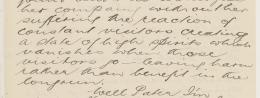 her company without her
suffering the reaction of
constant visitors creating
a state of high spirits which
vanishes when those
visitors go - leaving harm
rather than benefit in the
long run.
Well Pater I'm